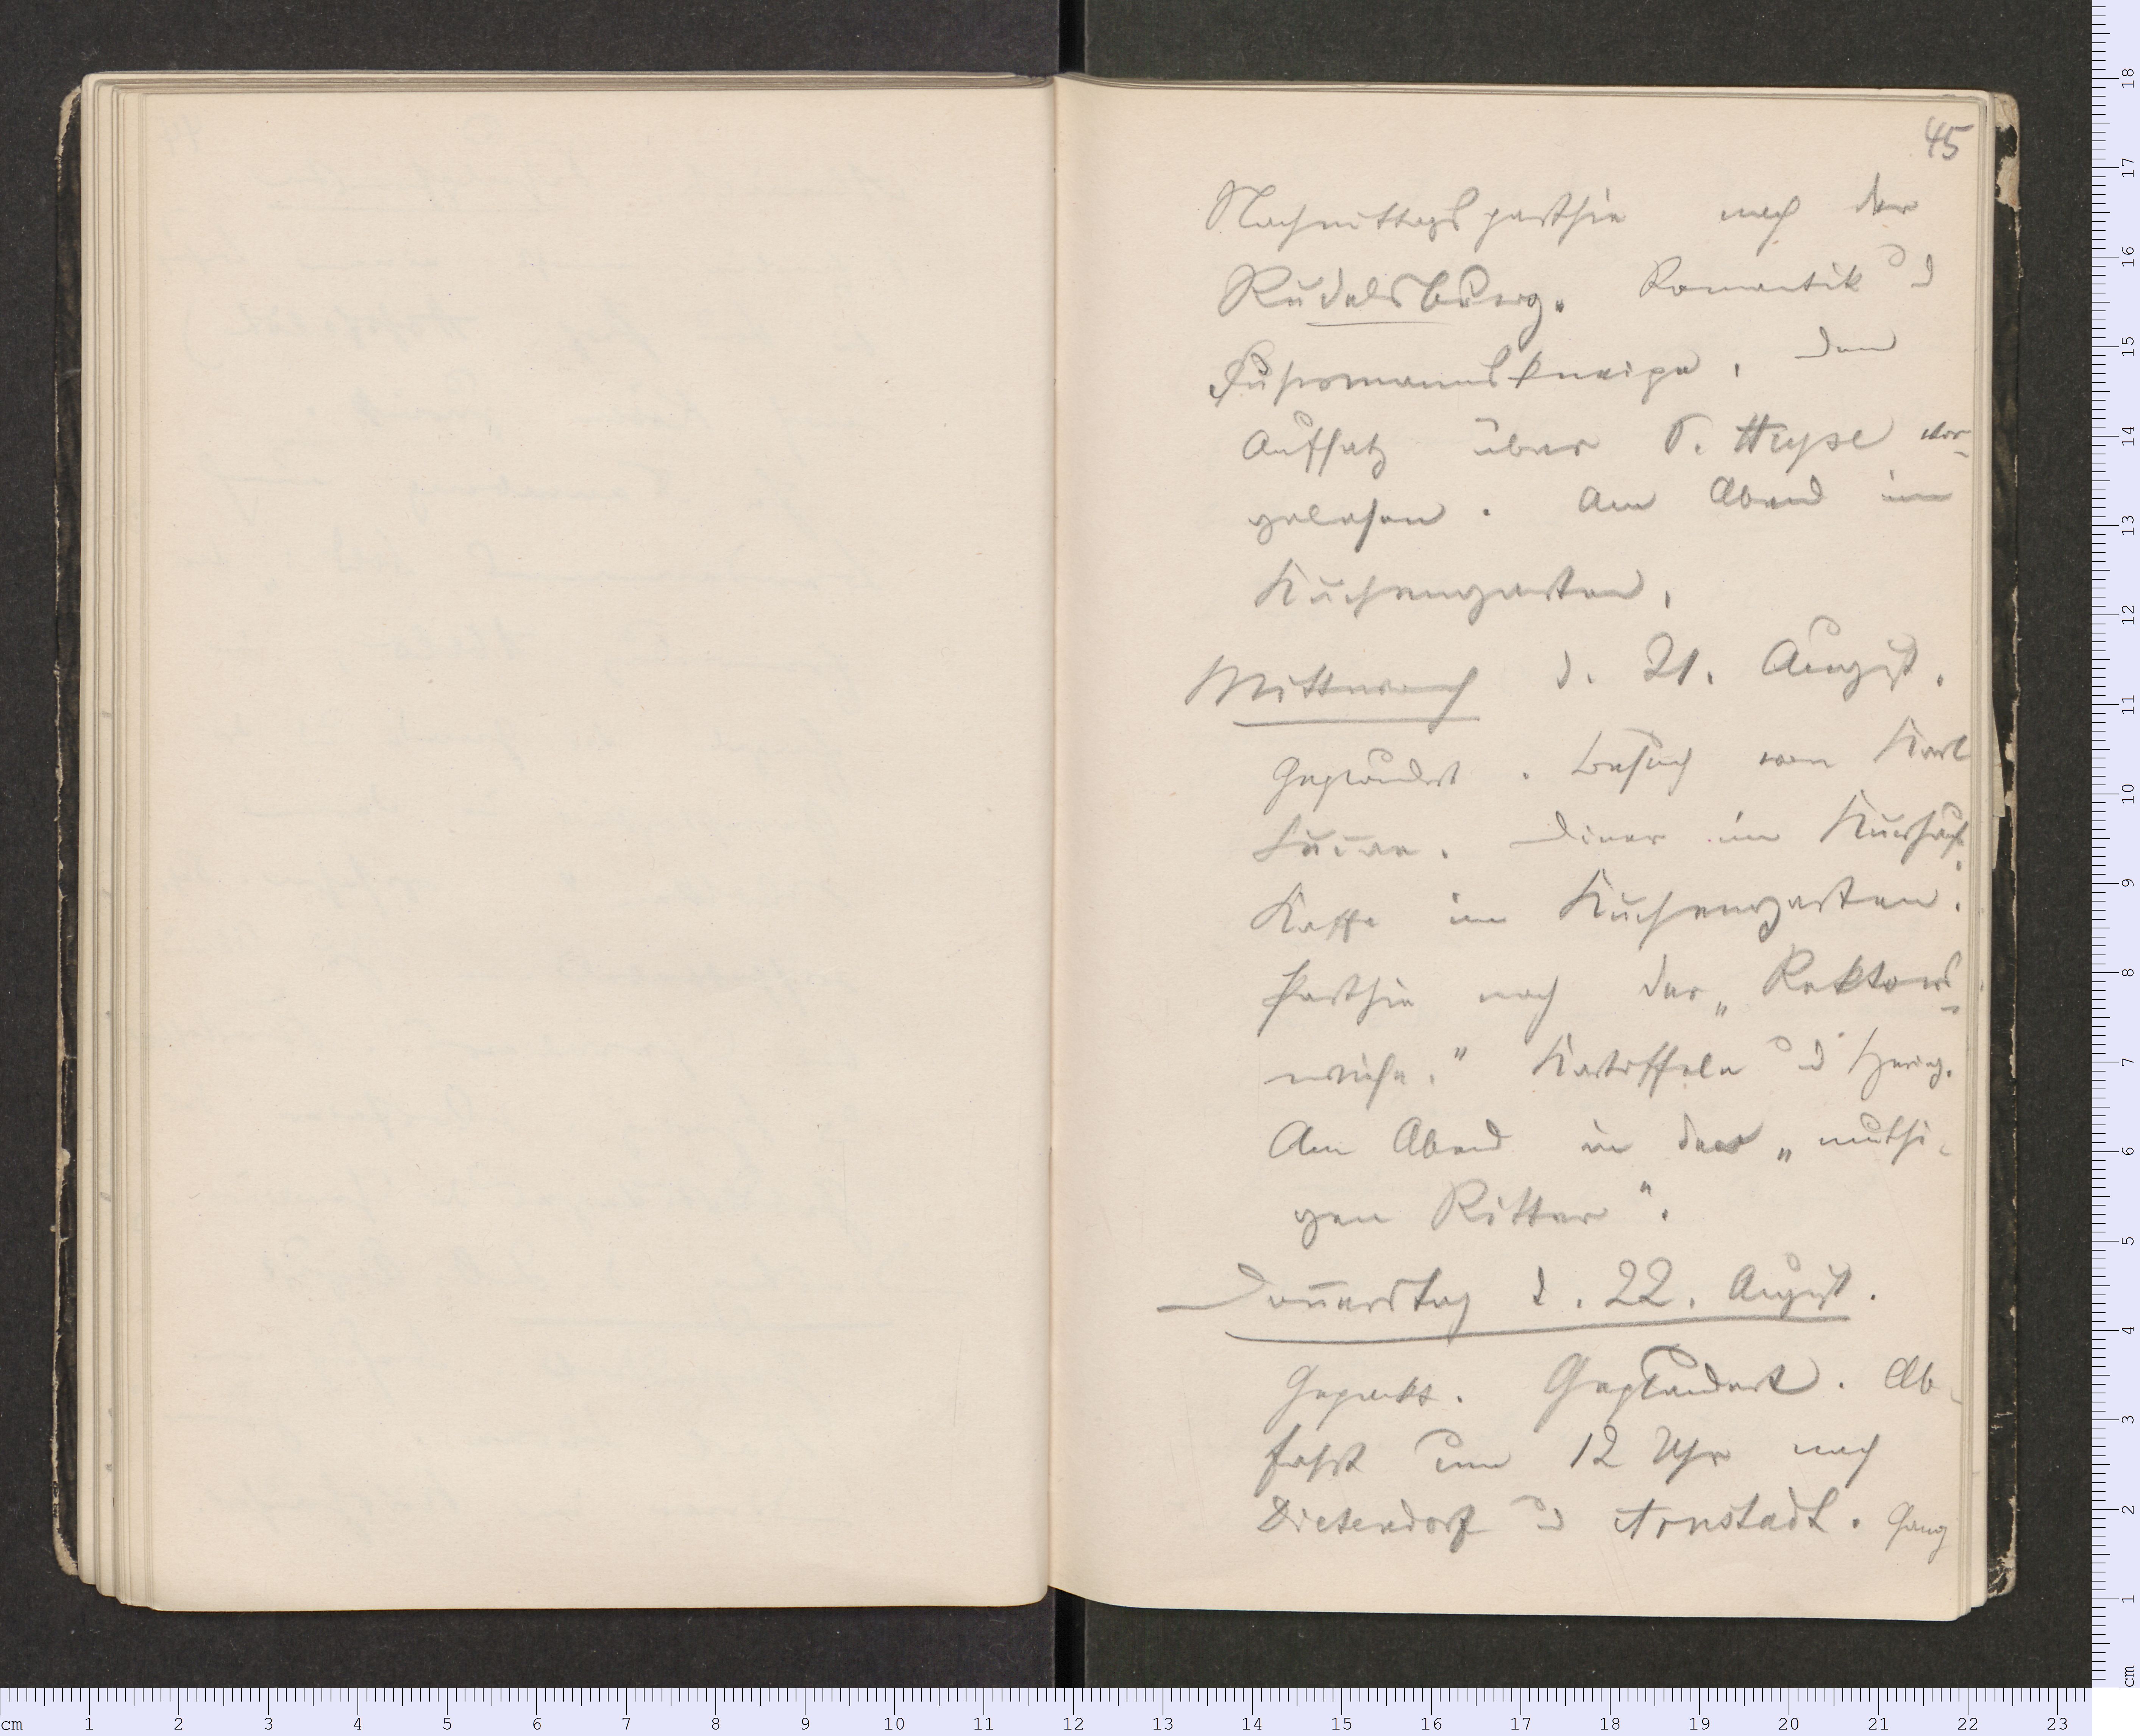 45
Nachmittagsparthie nach der
Rudelsburg. Romantik u
Fuhrmannskneipe. Den
Aufsatz über P. Heyse vor-
gelesen. Am Abend im
Kuchengarten.
Mittwoch d. 21. August.
Geplaudert. Besuch von Karl
Lucae. Diner im Kurhaus.
Kaffe im Kuchengarten.
Parthie nach der „Rektors-
wiese." Kartoffeln u Hering.
Am Abend in den „muthi-
gen Ritter".
Donnerstag d. 22. August.
Gepackt. Geplaudert. Ab-
fahrt um 12 Uhr nach
Dietendorf u Arnstadt. Gang